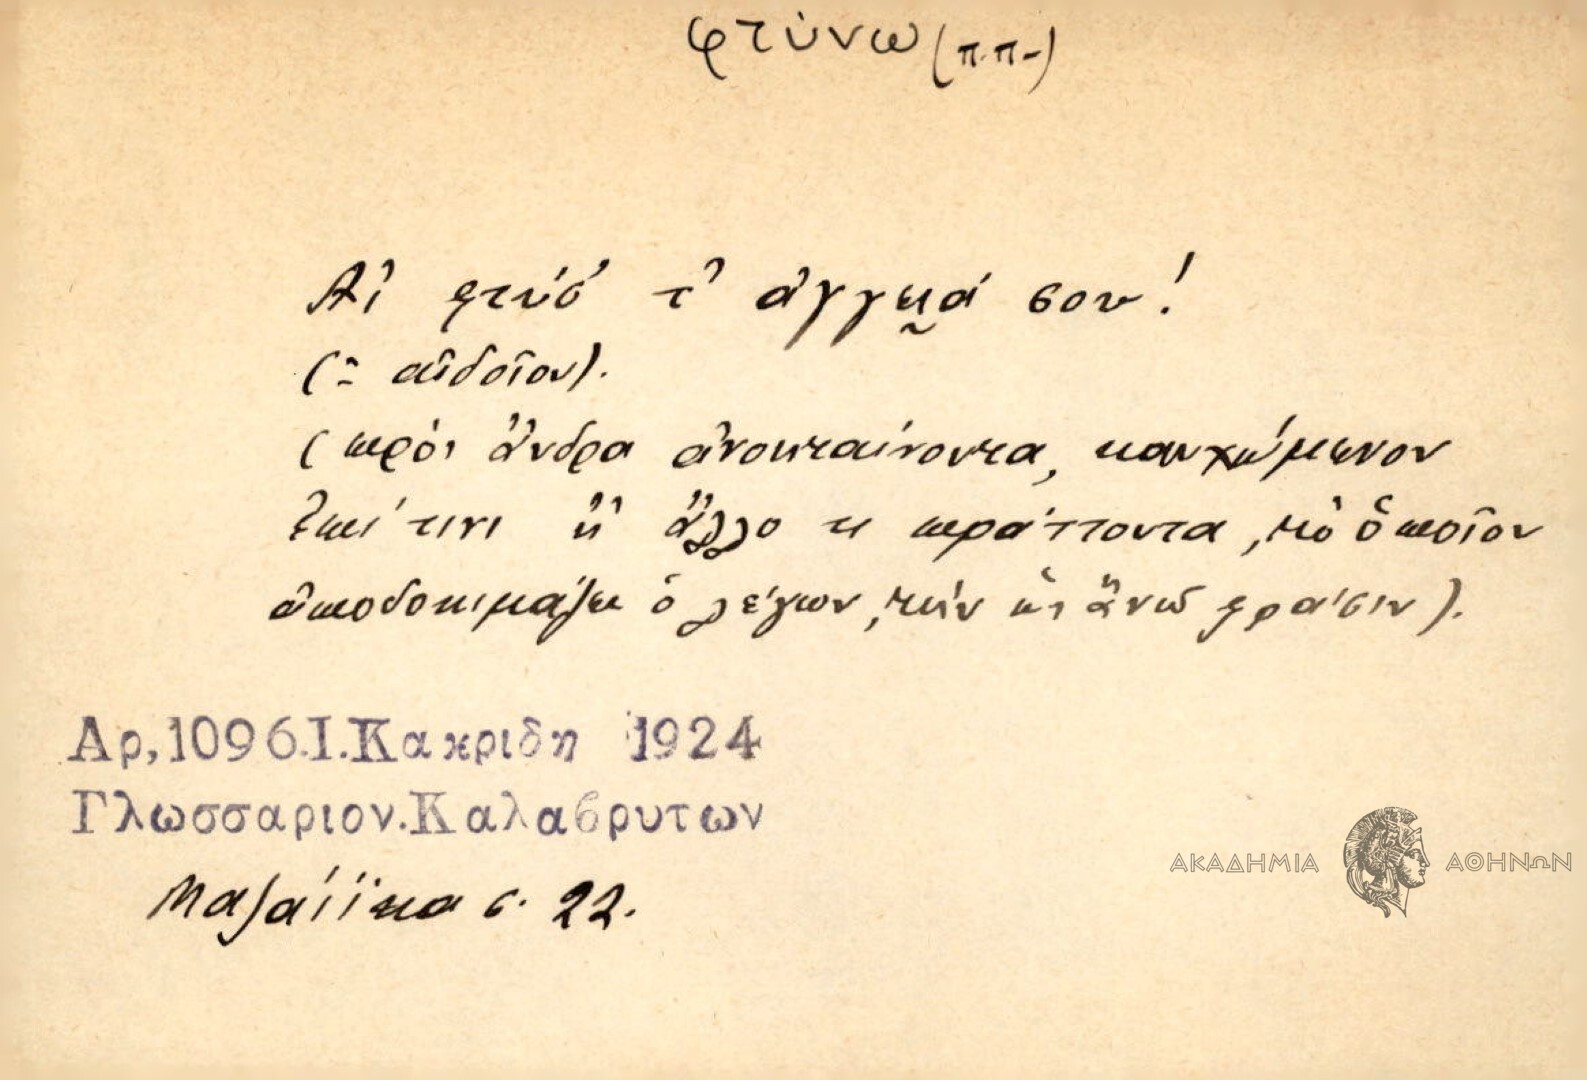 φτύνω (π.π.)
Αἲ φτύσ' τ' ἀγγειά σου!
(= αἰδοῖον).
(πρὸς ἄνδρα ἀνοηταίνοντα, καυχώμενον
ἐπί τινι ἢ ἄλλο τι πράττοντα, τὸ ὁποῖον
ἀποδοκιμάζει ὁ λέγων, τὴν ὡς ἄνω φράσιν).
Αρ,1096.Ι.Κακριδη 1924
Γλωσσαριον.Καλαβρυτων
Μαζαίικα σ. 22.
ΑΚΑΔΗΜΙΑ ΑΘΗΝΩΝ